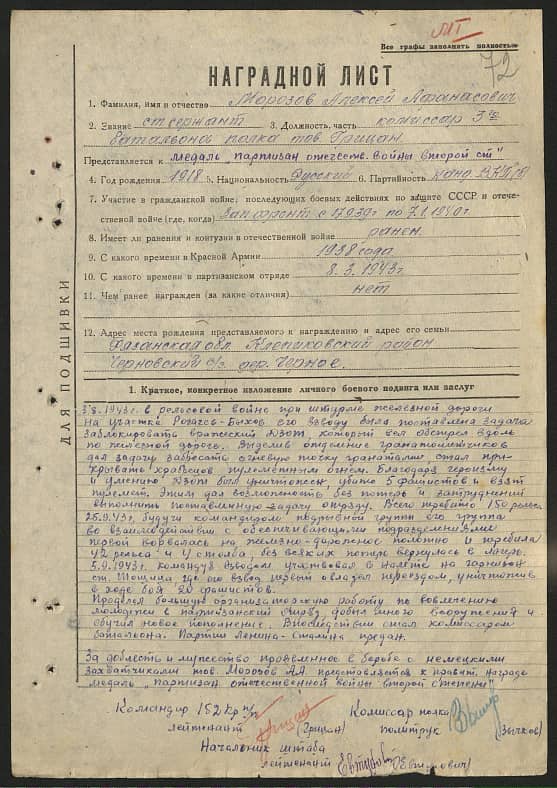 Все графы заполнять полностью
72
НАГРАДНОЙ ЛИСТ
1. Фамилия, имя и отчество Морозов Алексей Афанасович
2. Звание ст сержант 3. Должность, часть комиссар 3го
баталиона полка тов. Грицан
Представляется к медаль "партизан отечеств. войны второй ст"
4. Год рождения 1918 5. Национальность Русский 6. Партийность канд. ВКП(б)
7. Участие в гражданской войне, последующих боевых действиях по защите СССР и отече-
ственной войне (где, когда) Зап фронт с 17.9.39г по 7.1.1940г
8. Имеет ли ранения и контузии в отечественной войне ранен
9. С какого времени в Красной Армии 1938 года
10. С какого времени в партизанском отряде 8.3.1943г
11. Чем ранее награжден (за какие отличия) нет
12. Адрес места рождения представляемого к награждению и адрес его семьи
Рязанская обл. Клепиковский район
Черновский с/з дер. Черное.
ДЛЯ ПОДШИВКИ
1. Краткое, конкретное изложение личного боевого подвига или заслуг
3.8.1943г. в рельсовой войне при штурме железной дороги
на участке Рогачев-Быхов его взводу была поставлена задача
заблокировать вражеский ДЗОТ, который вел обстрел вдоль
по железной дороге. Выделив отделение гранатометчиков
дал задачу забросать огневую точку гранатами, стал при-
крывать храбрецов пулеметным огнем. Благодаря героизму
и умению ДЗОТ был уничтожен, убито 5 фашистов и взят
пулемет. Этим дал возможность без потерь и затруднений
выполнить поставленную задачу отряду. Всего перебито 150 рельс
25.9.43г. будучи командиром подрывной группы его группа
во взаимодействии с обеспечивающими подразделениями
первой ворвалась на железно-дорожное полотно и перебила
42 рельса и 4 столба, без всяких потерь вернулась в лагерь.
5.9.1943г. командуя взводом участвовал в налете на гарнизон
ст. Тощица где его взвод первый овладел переездом, уничтожив
в ходе боя 20 фашистов.
Проделал большую организаторскую работу по вовлечению
молодежи в партизанский отряд, добыл много вооружения и
обучил новое пополнение. Впоследствии стал комиссаром
батальона. Партии Ленина-Сталина предан.
За доблесть и мужество проявленное в борьбе с немецкими
захватчиками тов. Морозов А.А представляется к правит. награде
медаль "партизан отечественной войны второй степени"
Командир 152 кр п/п Комиссар полка
лейтенант (Грицан) политрук (Зычков)
Начальник штаба
лейтенант (Евтихович)